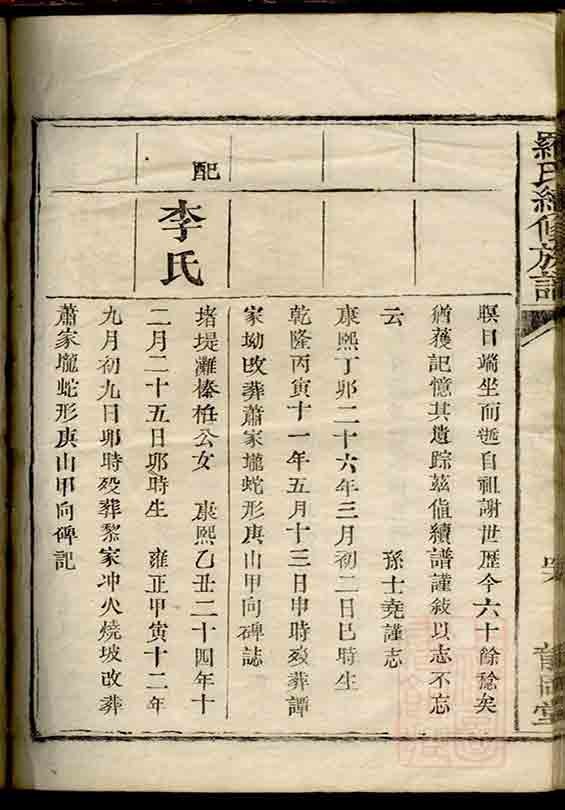 羅氏續修族譜
瞑目端坐而逝自祖謝世歷今六十餘稔矣
猶獲記憶其遺踪茲值續譜謹敍以志不忘
云 孫士堯謹志
康熙丁卯二十六年三月初二日巳時生
乾隆丙寅十一年五月十三日申時歿葬譚
家坳改葬蕭家壠蛇形庚山甲向碑誌
配
李氏
堵堤灘榛 公女 康熙乙丑二十四年十
二月二十五日卯時生 雍正甲寅十二年
九月初九日卯時歿葬黎家冲火燒坡改葬
蕭家壠蛇形庚山甲向碑記